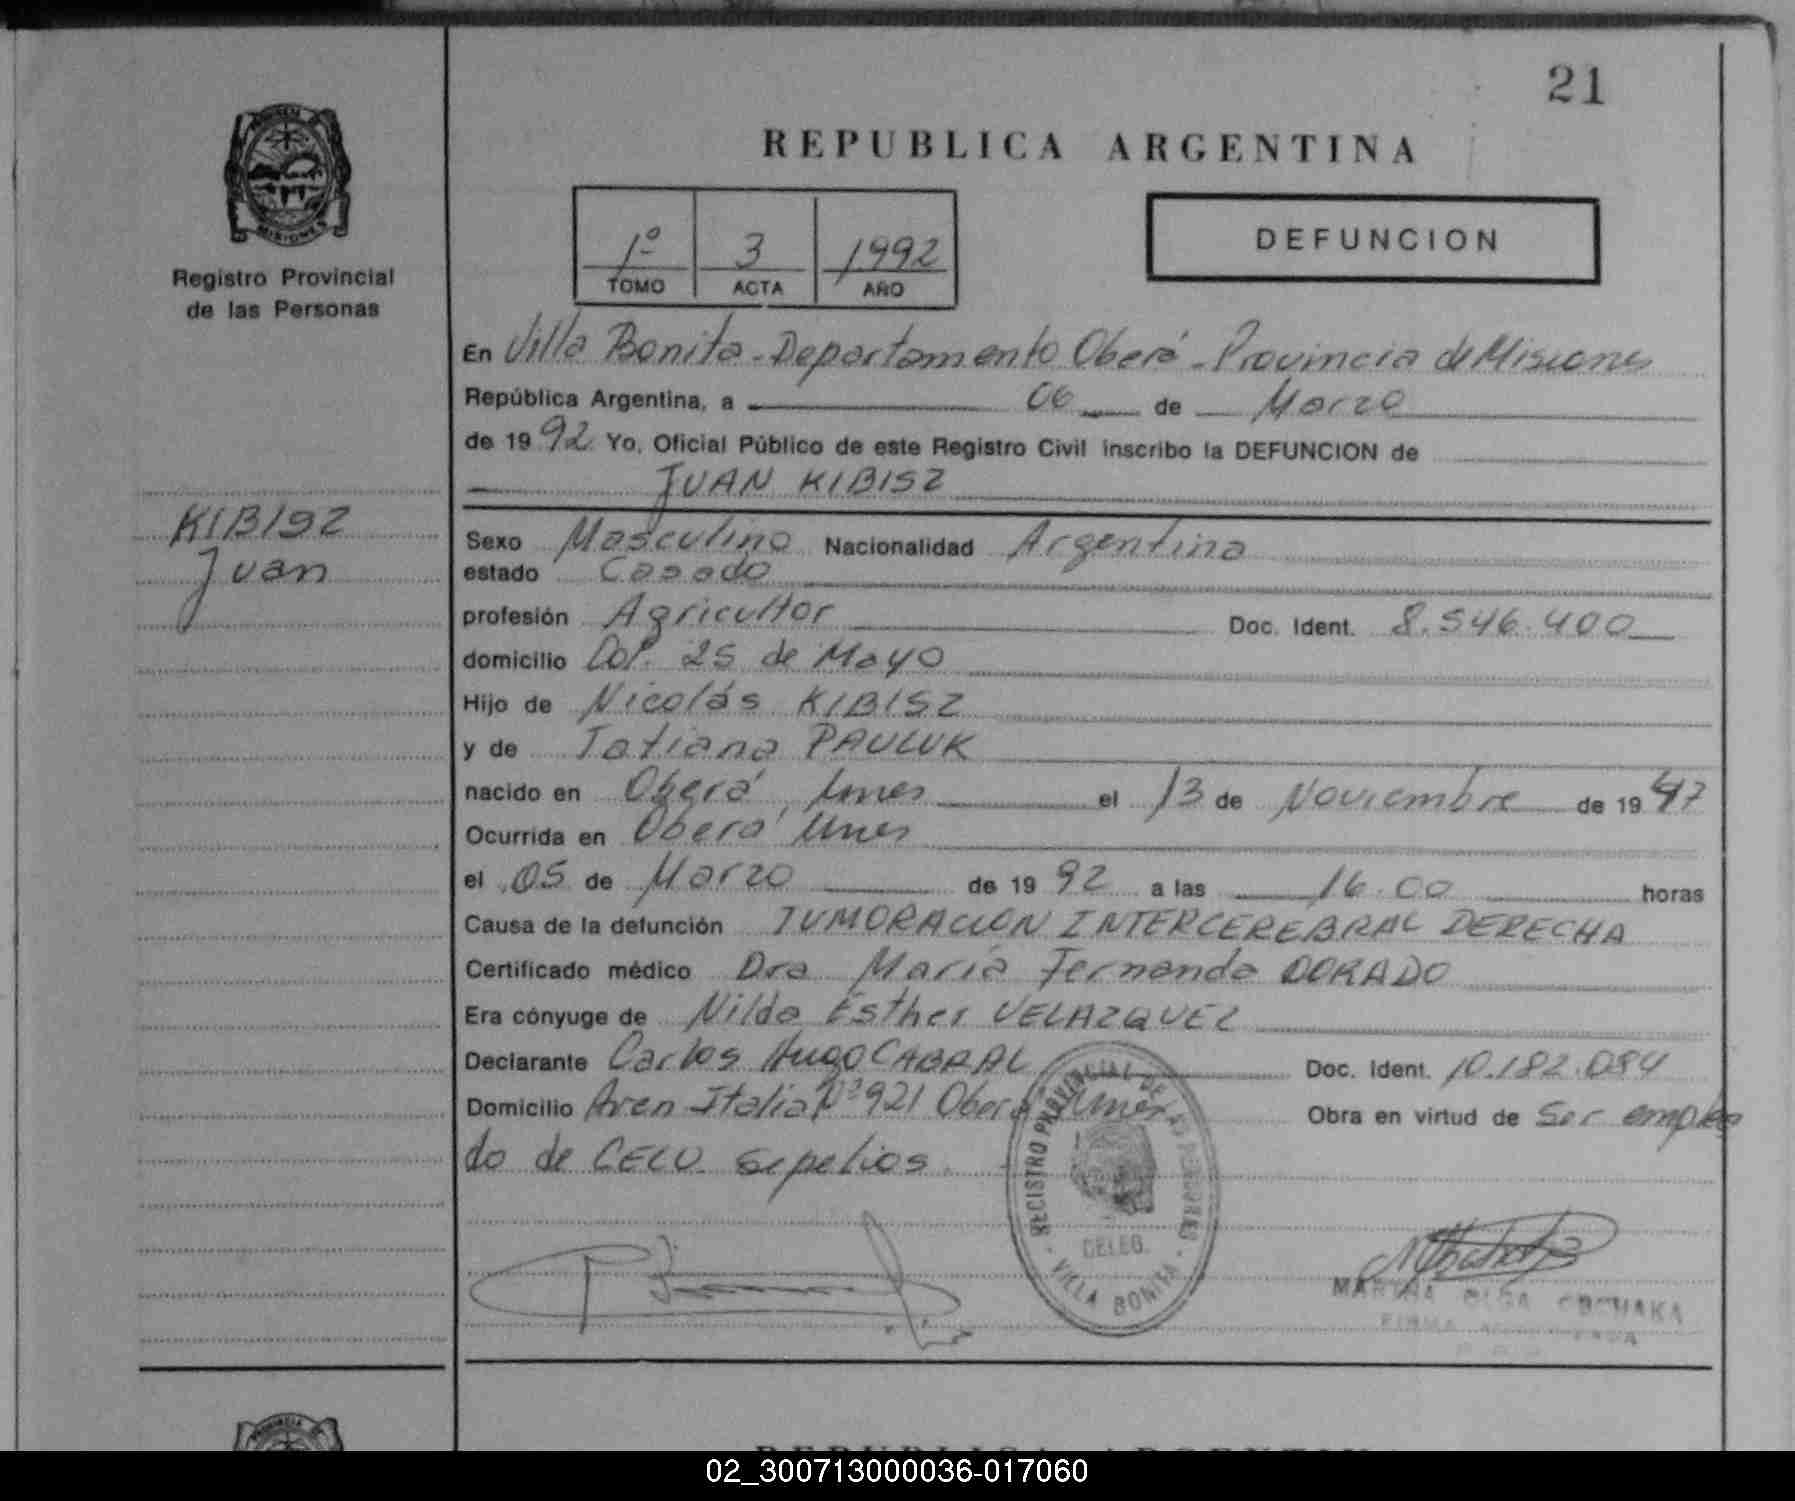 21
REPUBLICA ARGENTINA
PROVINCIA DE
MISIONES
Registro Provincial
de las Personas
1º 3 1992
TOMO ACTA AÑO
DEFUNCION
En Villa Bonita - Departamento Oberá - Provincia de Misiones
República Argentina, a 06 de Marzo
de 1992 Yo, Oficial Público de este Registro Civil inscribo la DEFUNCION de
JUAN KIBISZ
KIBISZ
Juan
Sexo Masculino Nacionalidad Argentina
estado Casado
profesión Agricultor Doc. Ident. 8.546.400
domicilio Col. 25 de Mayo
Hijo de Nicolás KIBISZ
y de Tatiana PAULUK
nacido en Oberá, Mnes el 13 de Noviembre de 1947
Ocurrida en Oberá Mnes
el 05 de Marzo de 1992 a las 16.00 horas
Causa de la defunción TUMORACION INTERCEREBRAL DERECHA
Certificado médico Dra María Fernanda DORADO
Era cónyuge de Nilda Esther VELAZQUEZ
Declarante Carlos Hugo CABRAL Doc. Ident. 10.182.084
Domicilio Aven Italia Nº 921 Oberá Mnes Obra en virtud de Ser emplea
do de CELO. sepelios.
REGISTRO PROVINCIAL DE LAS PERSONAS
DELEG.
VILLA BONITA
MARTHA OLGA
FIRMA
02_300713000036-017060